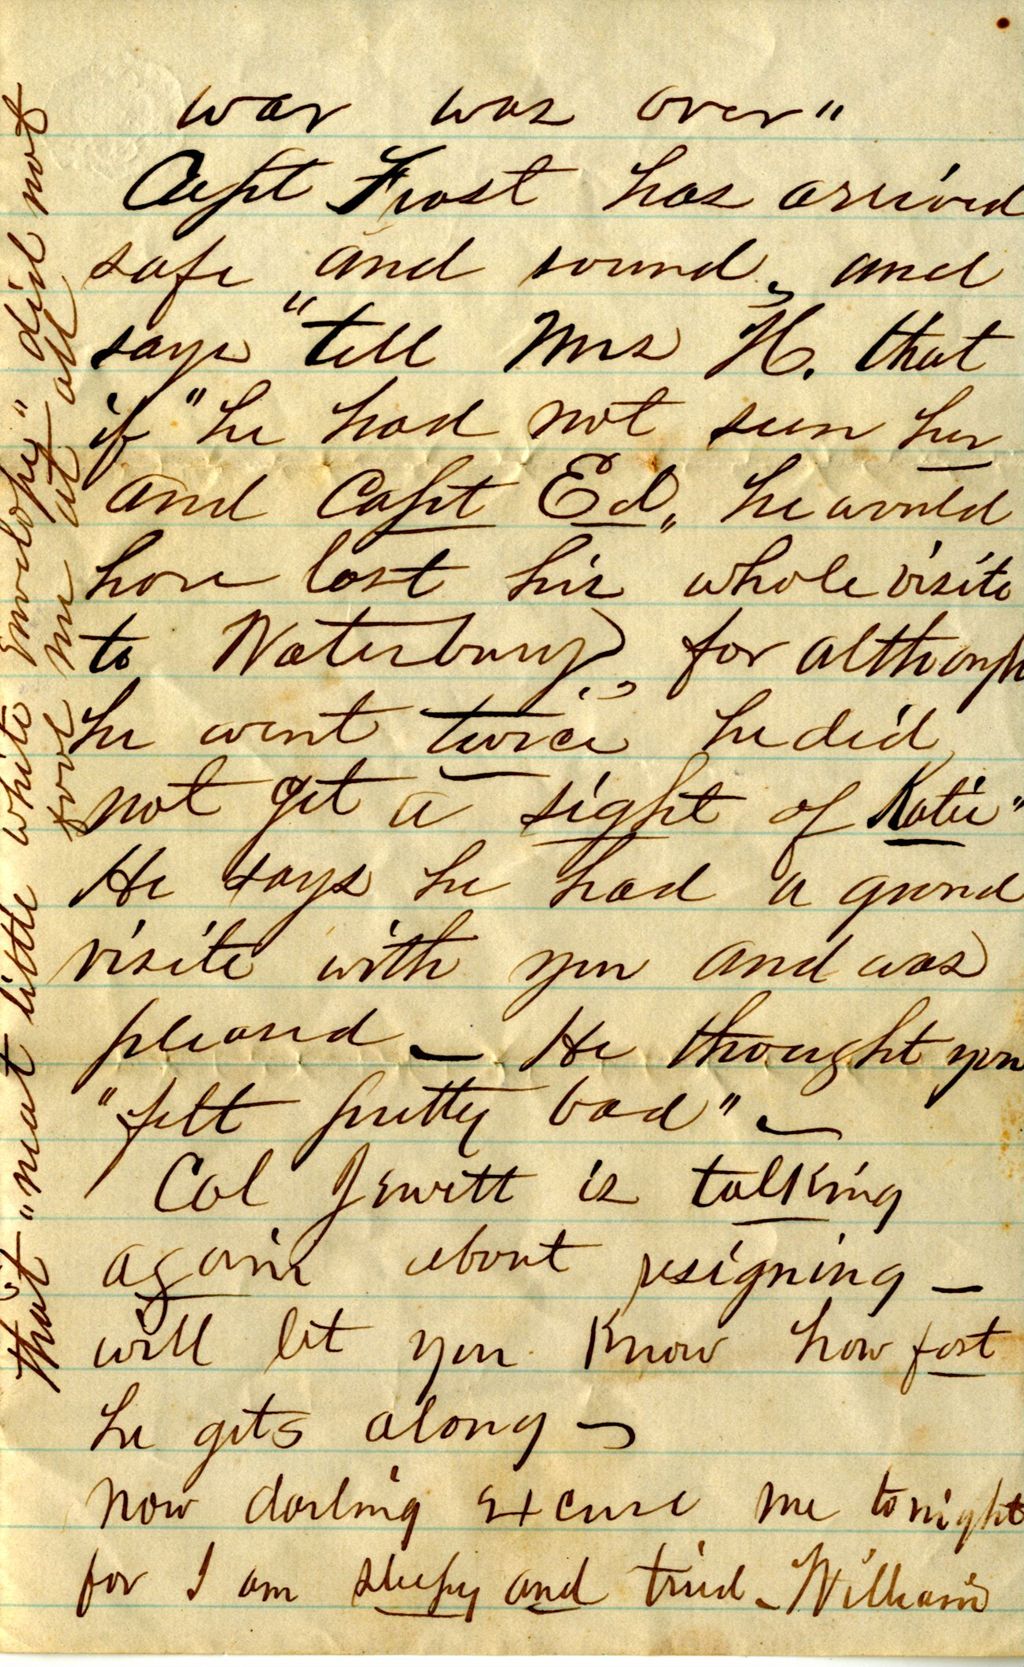 war was over"
Capt Frost has arrived
safe and sound, and
says "tell Mrs H. that
if "he had not seen her
and Capt Ed" he would
have lost his whole visite
to Waterbury", for although
he went twice he did
not get a sight of Katie"
He says he had a grand
visite with you and was
pleased — He thought you
"felt pretty bad" —
Col Jewett is talking
again about resigning —
will let you know how fast
he gets along —
now darling excuse me tonight
for I am sleepy and tired — William
That "neat little white Envelope" did not
fool me at all